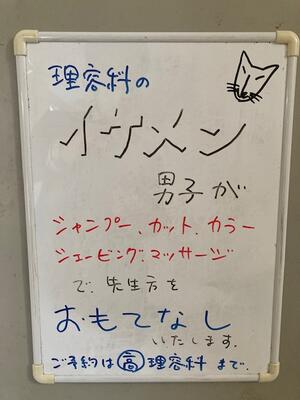 理容科の
イケメン
男子が
シャンプー、カット、カラー
シェービング、マッサージ
で、先生方を
おもてなし
いたします。
ご予約は高理容科まで。